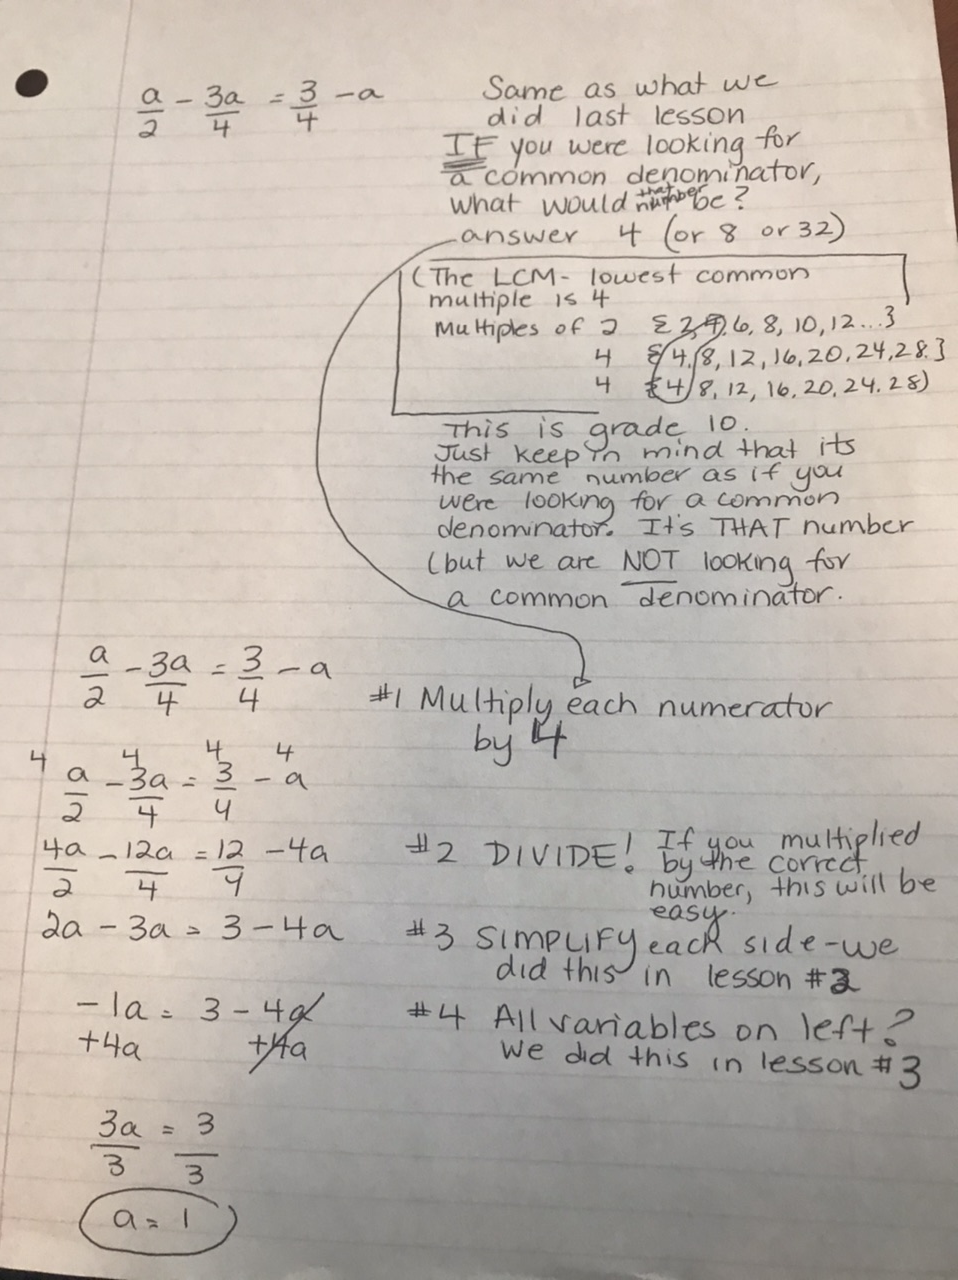 a/2 - 3a/4 = 3/4 - a
Same as what we
did last lesson
IF you were looking for
a common denominator,
what would that number be?
answer 4 (or 8 or 32)
(The LCM- lowest common
multiple is 4
Multiples of 2 {2, 4, 6, 8, 10, 12...}
4 {4, 8, 12, 16, 20, 24, 28.}
4 {4, 8, 12, 16, 20, 24. 28)
This is grade 10.
Just keep in mind that its
the same number as if you
were looking for a common
denominator. It's THAT number
(but we are NOT looking for
a common denominator.
a/2 - 3a/4 = 3/4 - a
#1 Multiply each numerator
by 4
4 4 4 4
a/2 - 3a/4 = 3/4 - a
4a/2 - 12a/4 = 12/4 - 4a
#2 DIVIDE! If you multiplied
by the correct
number, this will be
easy.
2a - 3a = 3 - 4a
#3 SIMPLIFY each side-we
did this in lesson #2
-1a = 3 - 4a
+4a +4a
#4 All variables on left?
We did this in lesson #3
3a/3 = 3/3
a = 1